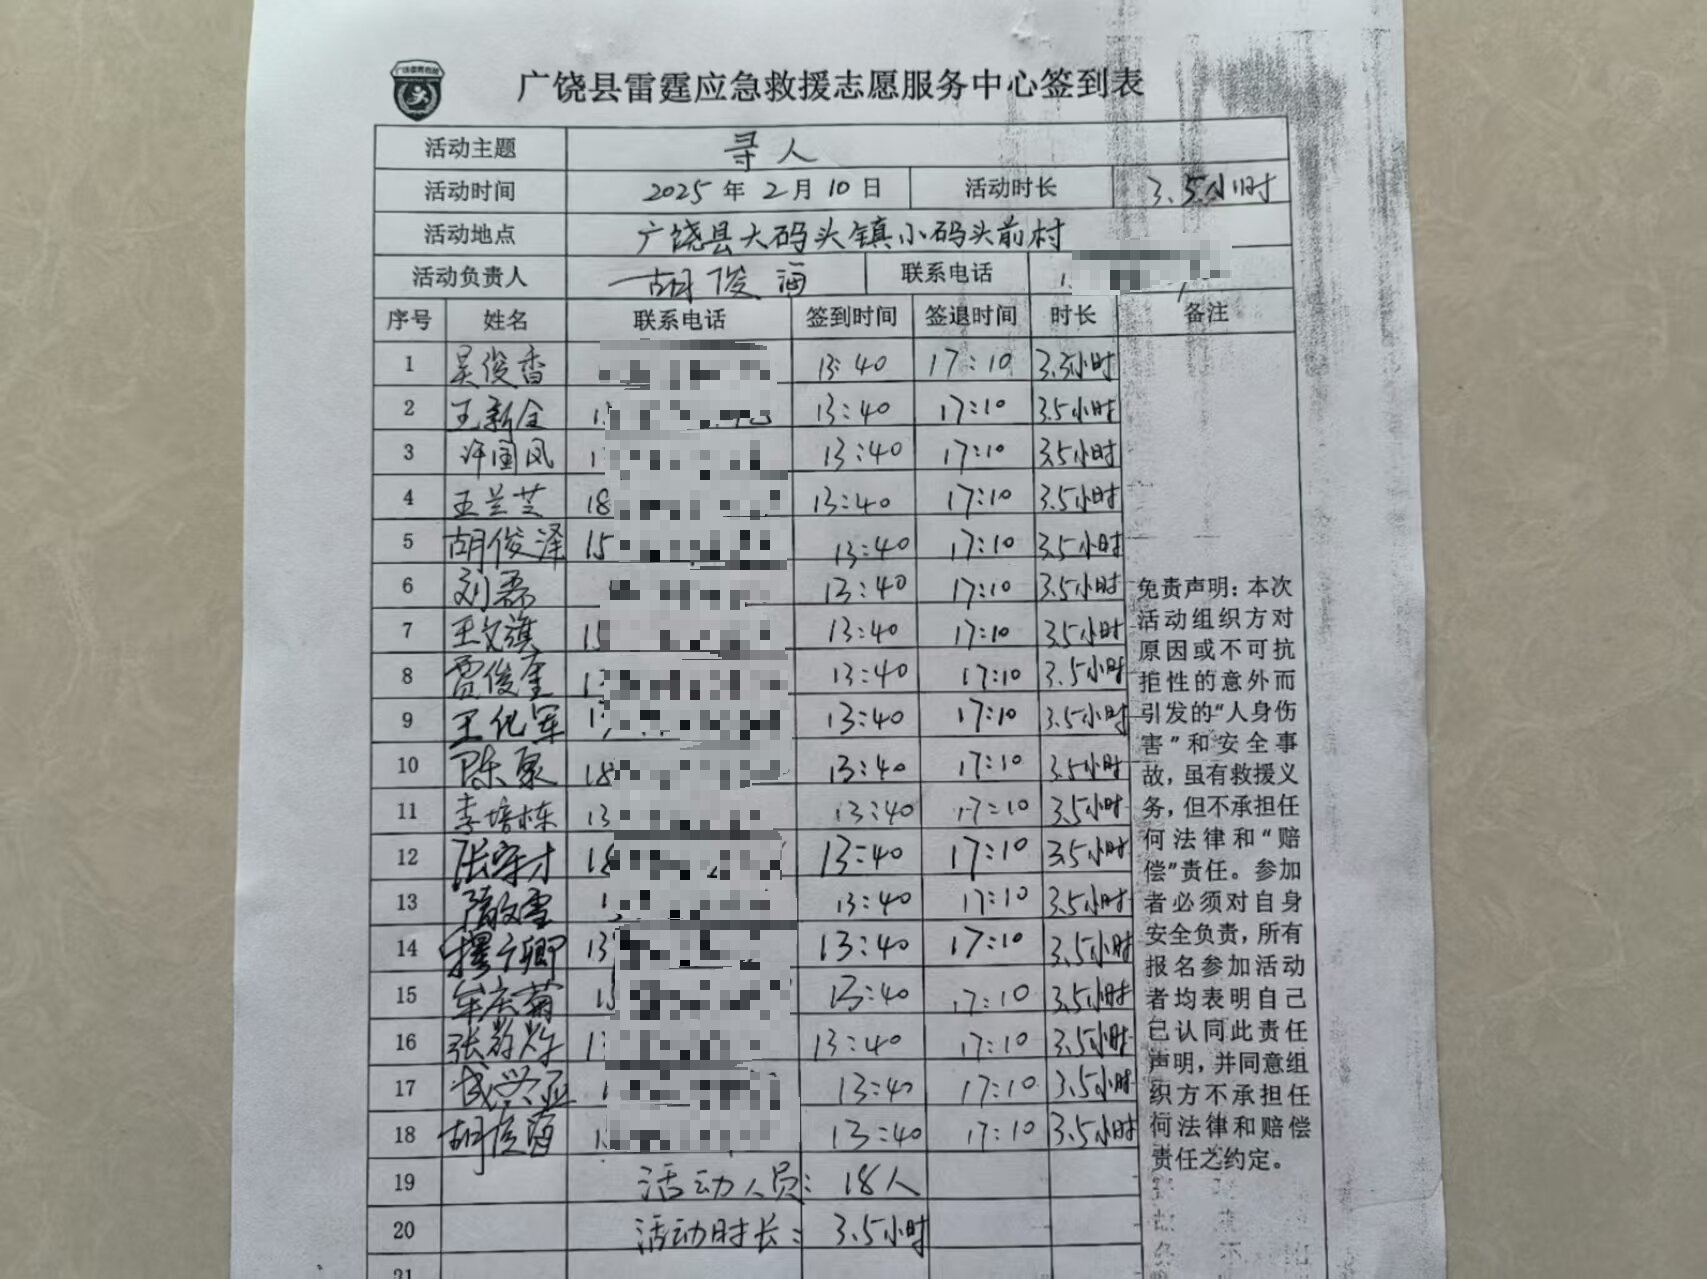 广饶县雷霆应急救援志愿服务中心签到表
活动主题 寻人
活动时间 2025年2月10日 活动时长 3.5小时
活动地点 广饶县大码头镇小码头前村
活动负责人 胡俊海 联系电话
序号 姓名 联系电话 签到时间 签退时间 时长 备注
1 吴俊香 13:40 17:10 3.5小时
2 王新全 13:40 17:10 3.5小时
3 许国凤 13:40 17:10 3.5小时
4 王兰芝 18 13:40 17:10 3.5小时
5 胡俊泽 15 13:40 17:10 3.5小时
6 刘磊 13:40 17:10 3.5小时
7 王文旗 15 13:40 17:10 3.5小时
8 贾俊奎 13:40 17:10 3.5小时
9 王化军 13:40 17:10 3.5小时
10 陈泉 18 13:40 17:10 3.5小时
11 李培栋 13 13:40 17:10 3.5小时
12 张守才 18 13:40 17:10 3.5小时
13 隋文雪 13:40 17:10 3.5小时
14 广卿 13 13:40 17:10 3.5小时
15 牟庆菊 13:40 17:10 3.5小时
16 张 13:40 17:10 3.5小时
17 成兴亚 13:40 17:10 3.5小时
18 胡俊海 13:40 17:10 3.5小时
19 活动人员：18人
20 活动时长：3.5小时
21
免责声明：本次
活动组织方对
原因或不可抗
拒性的意外而
引发的“人身伤
害”和安全事
故，虽有救援义
务，但不承担任
何法律和“赔
偿”责任。参加
者必须对自身
安全负责，所有
报名参加活动
者均表明自己
已认同此责任
声明，并同意组
织方不承担任
何法律和赔偿
责任之约定。